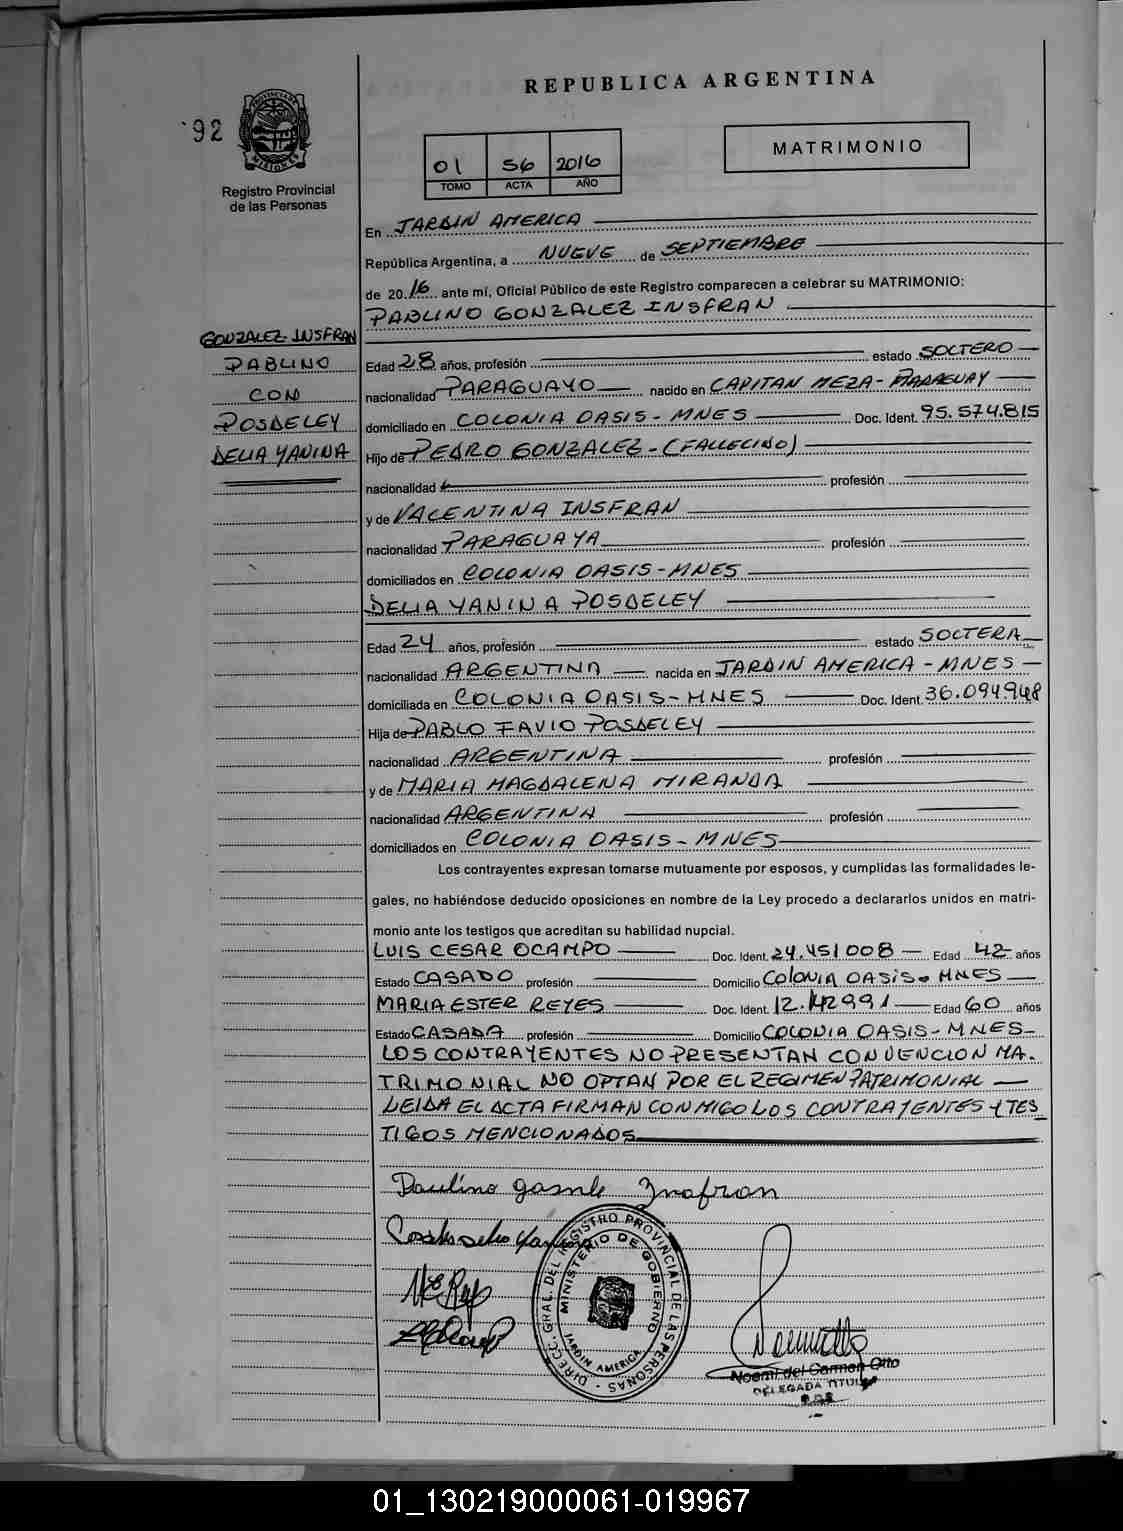 REPUBLICA ARGENTINA
92
PROVINCIA DE MISIONES
Registro Provincial
de las Personas
01 56 2016
TOMO ACTA AÑO
MATRIMONIO
En JARDIN AMERICA
República Argentina, a NUEVE de SEPTIEMBRE
de 2016 ante mí, Oficial Público de este Registro comparecen a celebrar su MATRIMONIO:
PABLINO GONZALEZ INSFRAN
GONZALEZ INSFRAN
PABLINO
CON
POSDELEY
DELIA YANINA
Edad 28 años, profesión estado SOLTERO
nacionalidad PARAGUAYO nacido en CAPITAN MEZA - PARAGUAY
domiciliado en COLONIA OASIS - MNES Doc. Ident. 95.574.815
Hijo de PEDRO GONZALEZ - (FALLECIDO)
nacionalidad profesión
y de VALENTINA INSFRAN
nacionalidad PARAGUAYA profesión
domiciliados en COLONIA OASIS - MNES
DELIA YANINA POSDELEY
Edad 24 años, profesión estado SOLTERA
nacionalidad ARGENTINA nacida en JARDIN AMERICA - MNES
domiciliada en COLONIA OASIS - MNES Doc. Ident. 36.094.948
Hija de PABLO FAVIO POSDELEY
nacionalidad ARGENTINA profesión
y de MARIA MAGDALENA MIRANDA
nacionalidad ARGENTINA profesión
domiciliados en COLONIA OASIS - MNES
Los contrayentes expresan tomarse mutuamente por esposos, y cumplidas las formalidades le-
gales, no habiéndose deducido oposiciones en nombre de la Ley procedo a declararlos unidos en matri-
monio ante los testigos que acreditan su habilidad nupcial.
LUIS CESAR OCAMPO Doc. Ident. 24.451008 Edad 42 años
Estado CASADO profesión Domicilio COLONIA OASIS - MNES
MARIA ESTER REYES Doc. Ident. Edad 60 años
Estado CASADA profesión Domicilio COLONIA OASIS - MNES
LOS CONTRAYENTES NO PRESENTAN CONVENCION MA.
TRIMONIAL NO OPTAN POR EL REGIMEN PATRIMONIAL
LEIDA EL ACTA FIRMAN CONMIGO LOS CONTRAYENTES Y TES
TIGOS MENCIONADOS
Insfran
DIRECC. GRAL. DEL REGISTRO PROVINCIAL DE LAS PERSONAS
MINISTERIO DE GOBIERNO
JARDIN AMERICA
Noemi del Carmen Otto
DELEGADA TITULAR
01_130219000061-019967